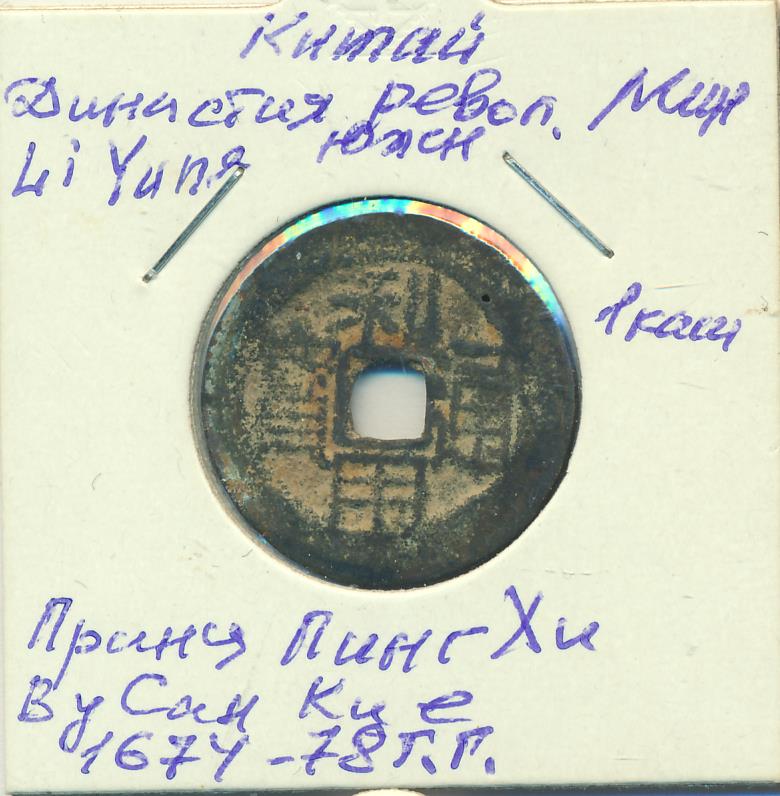 Китай
Династия револ. Мин
южн
Li Yung
1 каш
利用通寶
Принц Пинг Хи
Ву Сан Куе
1674-78 г.г.